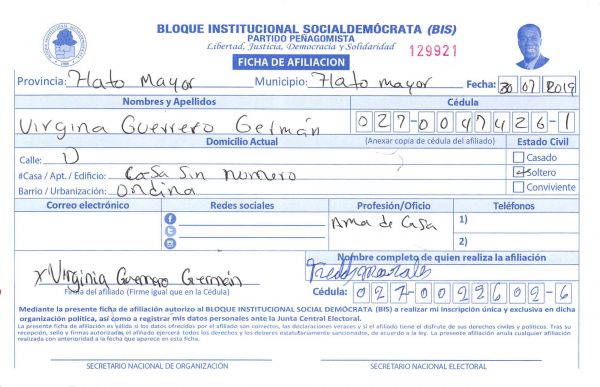 BLOQUE INSTITUCIONAL SOCIALDEMÓCRATA (BIS)
PARTIDO PEÑAGOMISTA
Libertad, Justicia, Democracia y Solidaridad
129921
FICHA DE AFILIACION
Provincia: Hato Mayor Municipio: Hato mayor Fecha: 30 07 2019
Nombres y Apellidos Cédula
Virgina Guerrero Germán 027-0047426-1
Domicilio Actual (Anexar copia de cédula del afiliado) Estado Civil
Calle: D Casado
#Casa / Apt. / Edificio: Casa Sin numero Soltero
Barrio / Urbanización: Ondina Conviviente
Correo electrónico Redes sociales Profesión/Oficio Teléfonos
Ama de Casa 1)
2)
Nombre completo de quien realiza la afiliación
x Virginia Guerrero Germán Freddy Morales
Firma del afiliado (Firme igual que en la Cédula) Cédula: 027-0022602-6
Mediante la presente ficha de afiliación autorizo al BLOQUE INSTITUCIONAL SOCIAL DEMÓCRATA (BIS) a realizar mi inscripción única y exclusiva en dicha
organización política, así como a registrar mis datos personales ante la Junta Central Electoral.
La presente ficha de afiliación es válida si los datos ofrecidos por el afiliado son correctos, las declaraciones veraces y si el afiliado tiene el disfrute de sus derechos civiles y políticos. Tras su
recepción, sello y firmas autorizadas, el afiliado ejercerá todos los derechos y los deberes estatutariamente sancionados, de acuerdo a la ley. La presente afiliación anula cualquier afiliación
realizada con anterioridad a la fecha que aparece en esta ficha.
SECRETARIO NACIONAL DE ORGANIZACIÓN SECRETARIO NACIONAL ELECTORAL